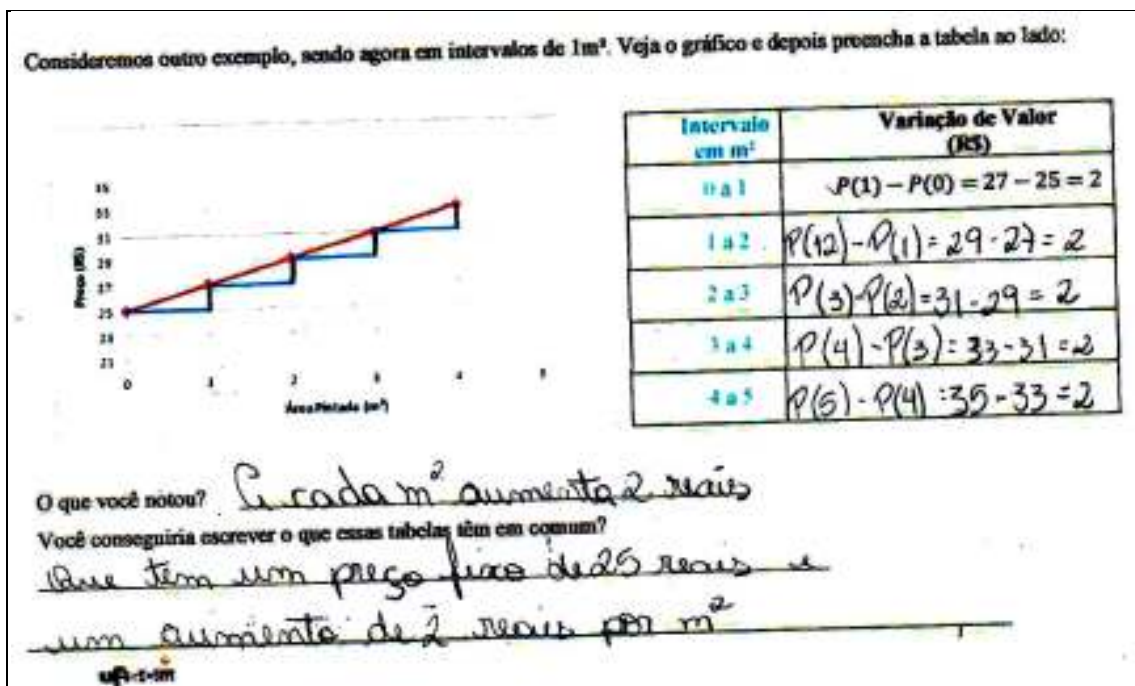 Consideremos outro exemplo, sendo agora em intervalos de 1m². Veja o gráfico e depois preencha a tabela ao lado:
35
33
31
29
27
25
23
21
Preço (R$)
0 1 2 3 4 5
Área Pintada (m²)
Intervalo em m² Variação de Valor (R$)
0 a 1 P(1) – P(0) = 27 – 25 = 2
1 a 2 P(12) - P(1) = 29 - 27 = 2
2 a 3 P(3) - P(2) = 31 - 29 = 2
3 a 4 P(4) - P(3) = 33 - 31 = 2
4 a 5 P(5) - P(4) = 35 - 33 = 2
O que você notou? A cada m² aumenta 2 reais
Você conseguiria escrever o que essas tabelas têm em comum?
Que tem um preço fixo de 25 reais e
um aumento de 2 reais por m²